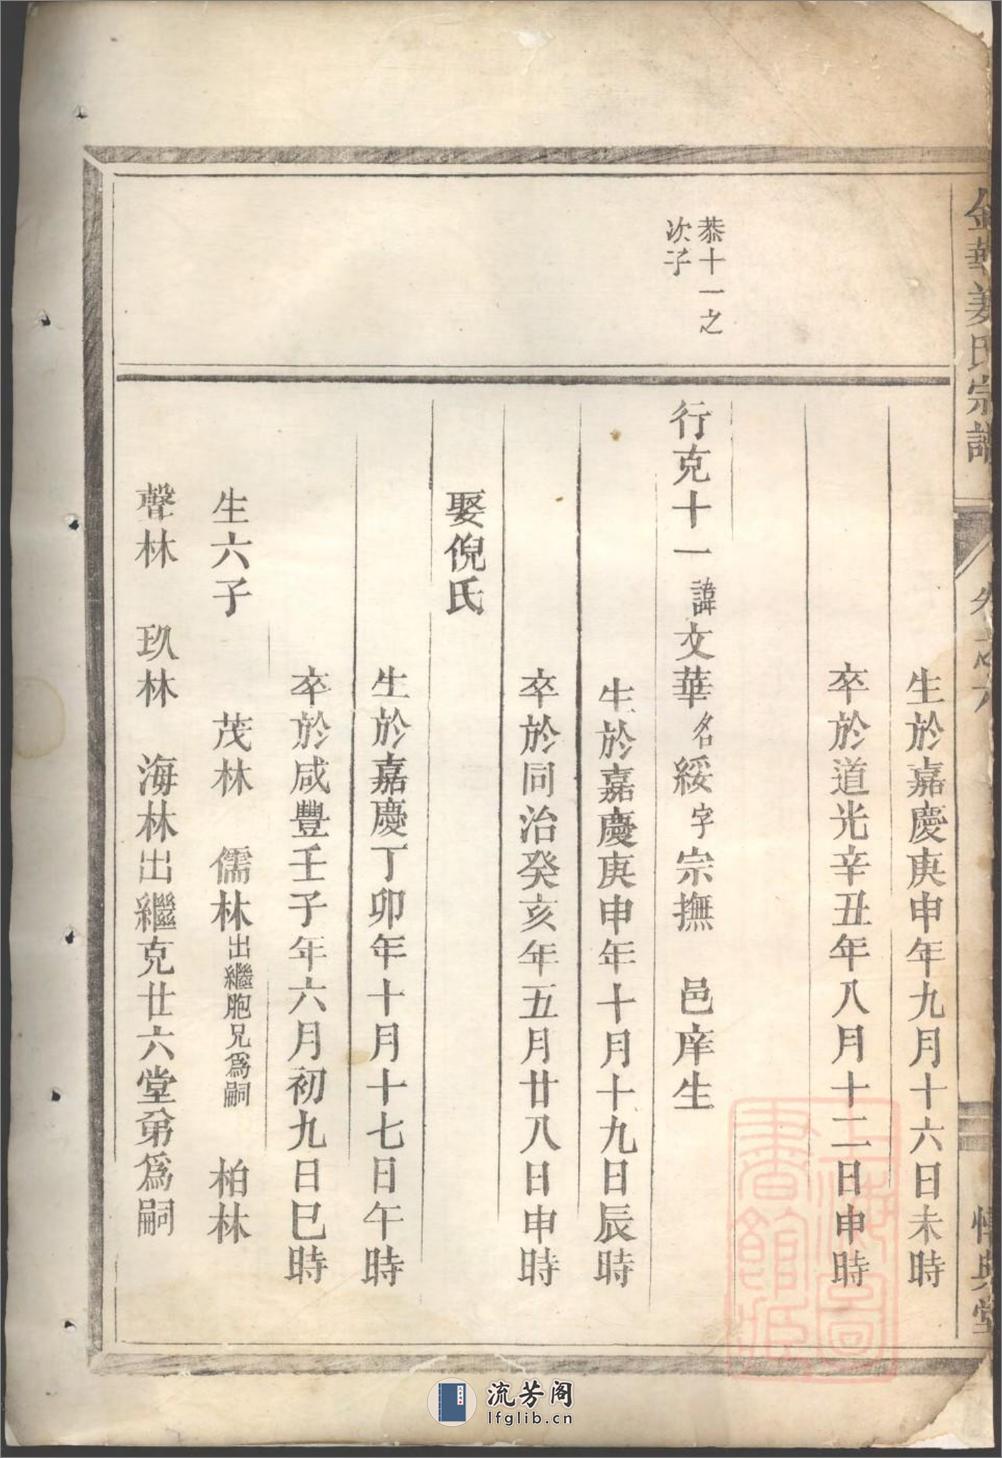 金華姜氏宗譜
卷之六
惇典堂
生於嘉慶庚申年九月十六日未時
卒於道光辛丑年八月十二日申時
恭十一之
次子
行克十一諱文華名綏字宗撫 邑庠生
生於嘉慶庚申年十月十九日辰時
卒於同治癸亥年五月廿八日申時
娶倪氏
生於嘉慶丁卯年十月十七日午時
卒於咸豐壬子年六月初九日巳時
生六子 茂林 儒林出繼胞兄爲嗣 柏林
聲林 玖林 海林出繼克廿六堂弟爲嗣
上海圖
書館藏
流芳阁
lfglib.cn